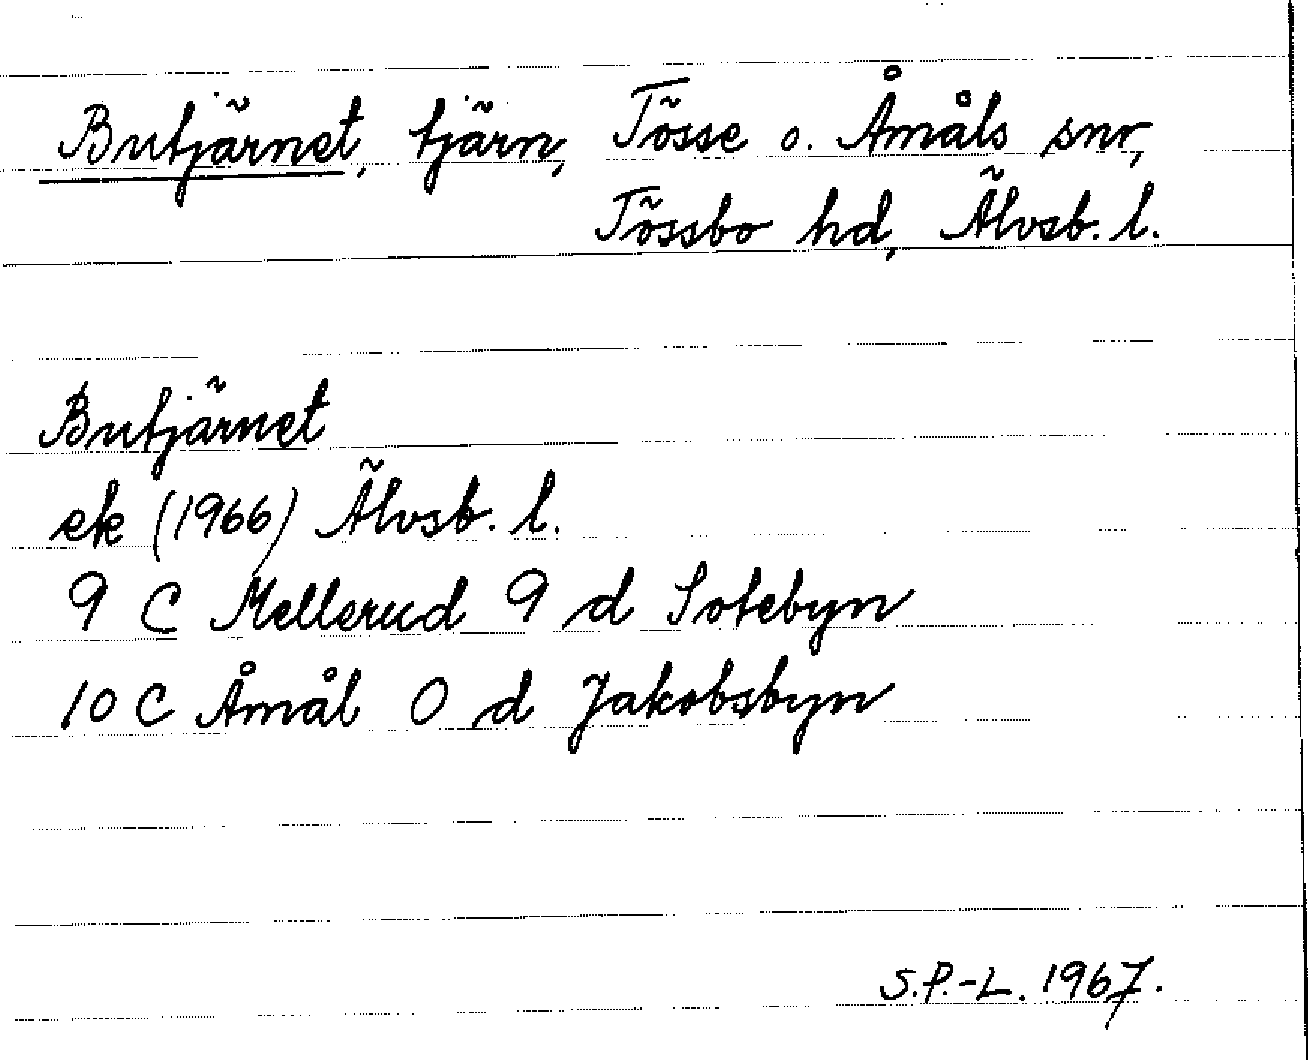 Butjärnet, tjärn, Tösse o. Åmåls snr,
Tössbo hd, Älvsb. l.
Butjärnet
ek (1966) Älvsb. l.
9 C Mellerud 9 d Sotebyn
10 C Åmål 0 d Jakobsbyn
S.P.-L. 1967.